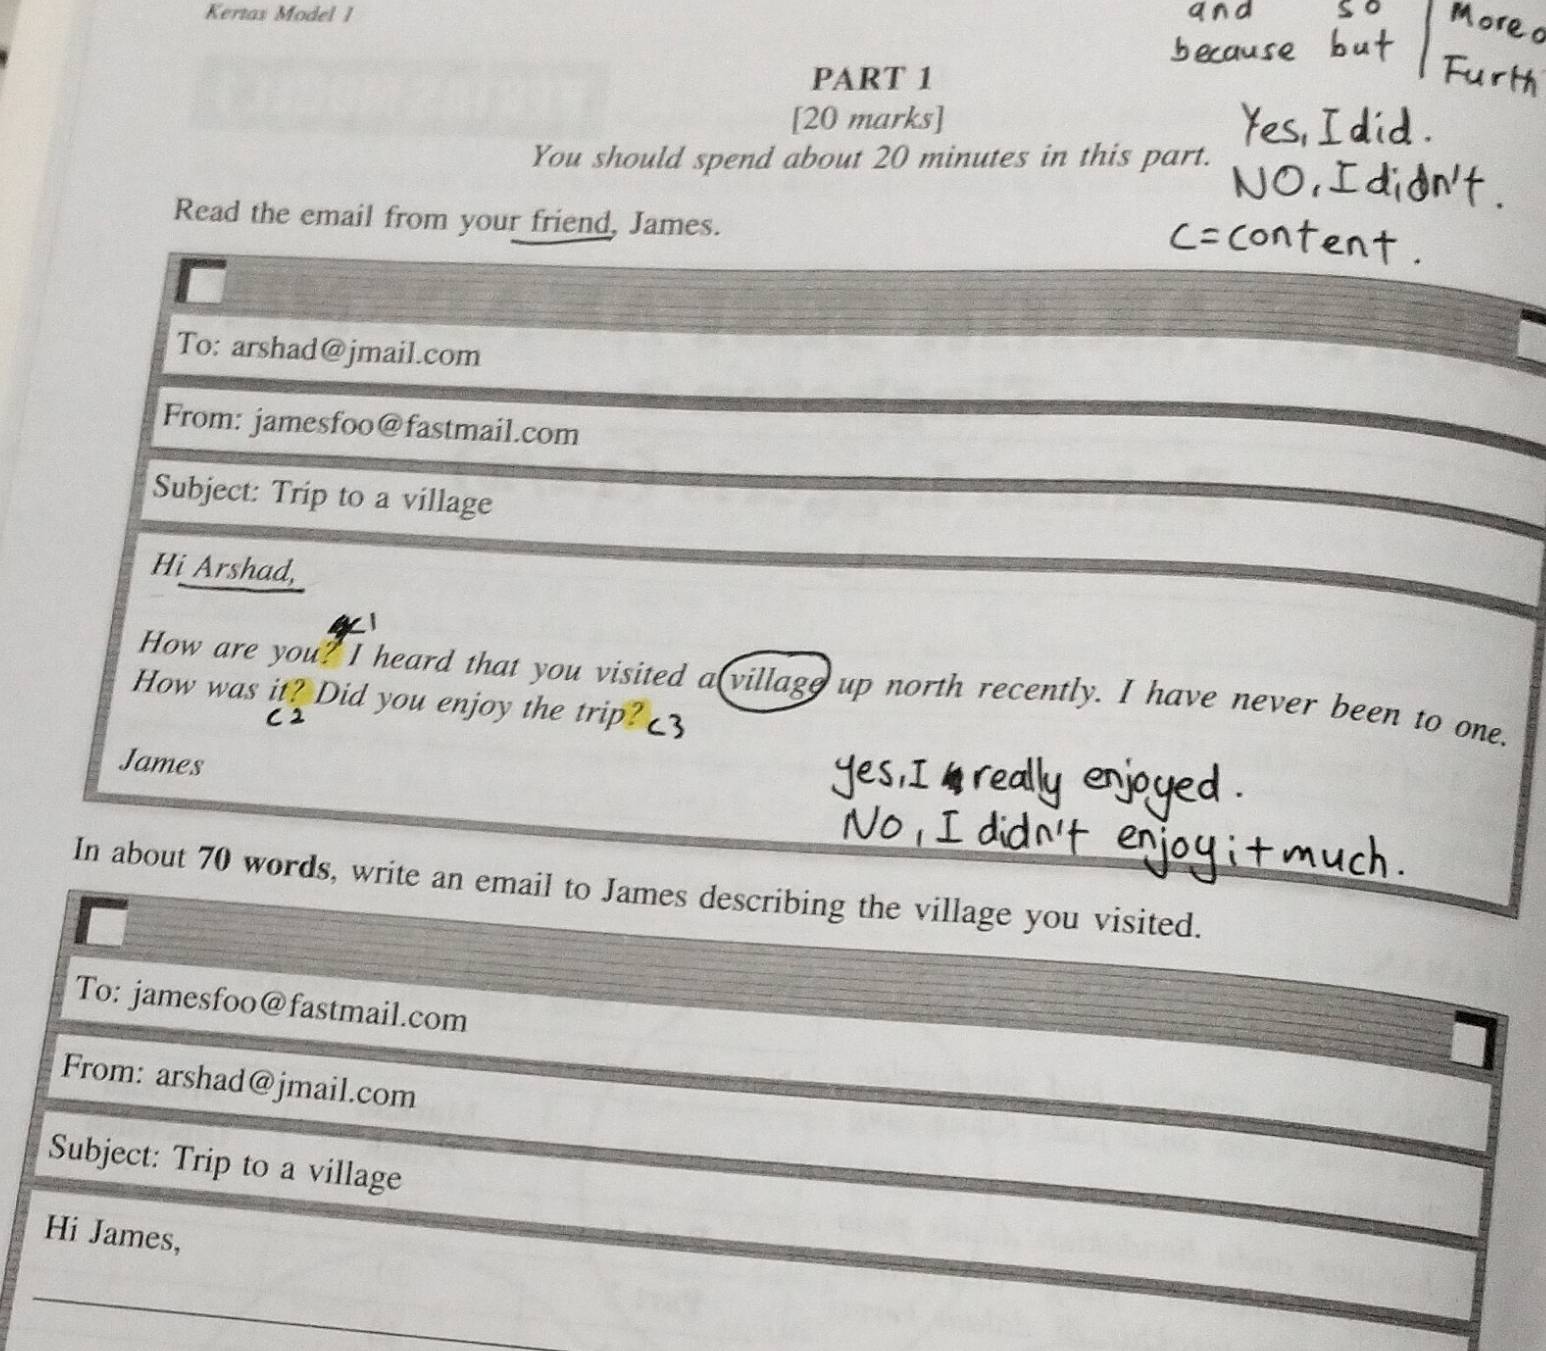 Kertas Model 1
and so
because but
More
Furth
PART 1
[20 marks]
You should spend about 20 minutes in this part.
Yes, I did.
NO, I didn't.
C = content.
Read the email from your friend, James.
To: arshad@jmail.com
From: jamesfoo@fastmail.com
Subject: Trip to a village
Hi Arshad,
c1
How are you? I heard that you visited a village up north recently. I have never been to one.
How was it? Did you enjoy the trip?
c2
c3
James
yes, I really enjoyed.
No, I didn't enjoy it much.
In about 70 words, write an email to James describing the village you visited.
To: jamesfoo@fastmail.com
From: arshad@jmail.com
Subject: Trip to a village
Hi James,